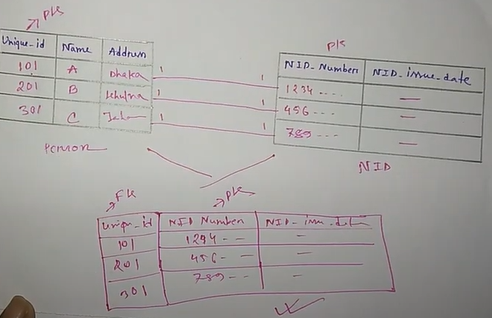 PK
Unique-id Name Address
101 A Dhaka
201 B Khulna
301 C
Person
1 1
1 1
1 1
PK
NID-Number NID-issue-date
1234.... —
456--- —
789--- —
NID
FK PK
Unique-id NID Number NID-issue-date
101 1234-- —
201 456-- —
301 789-- —